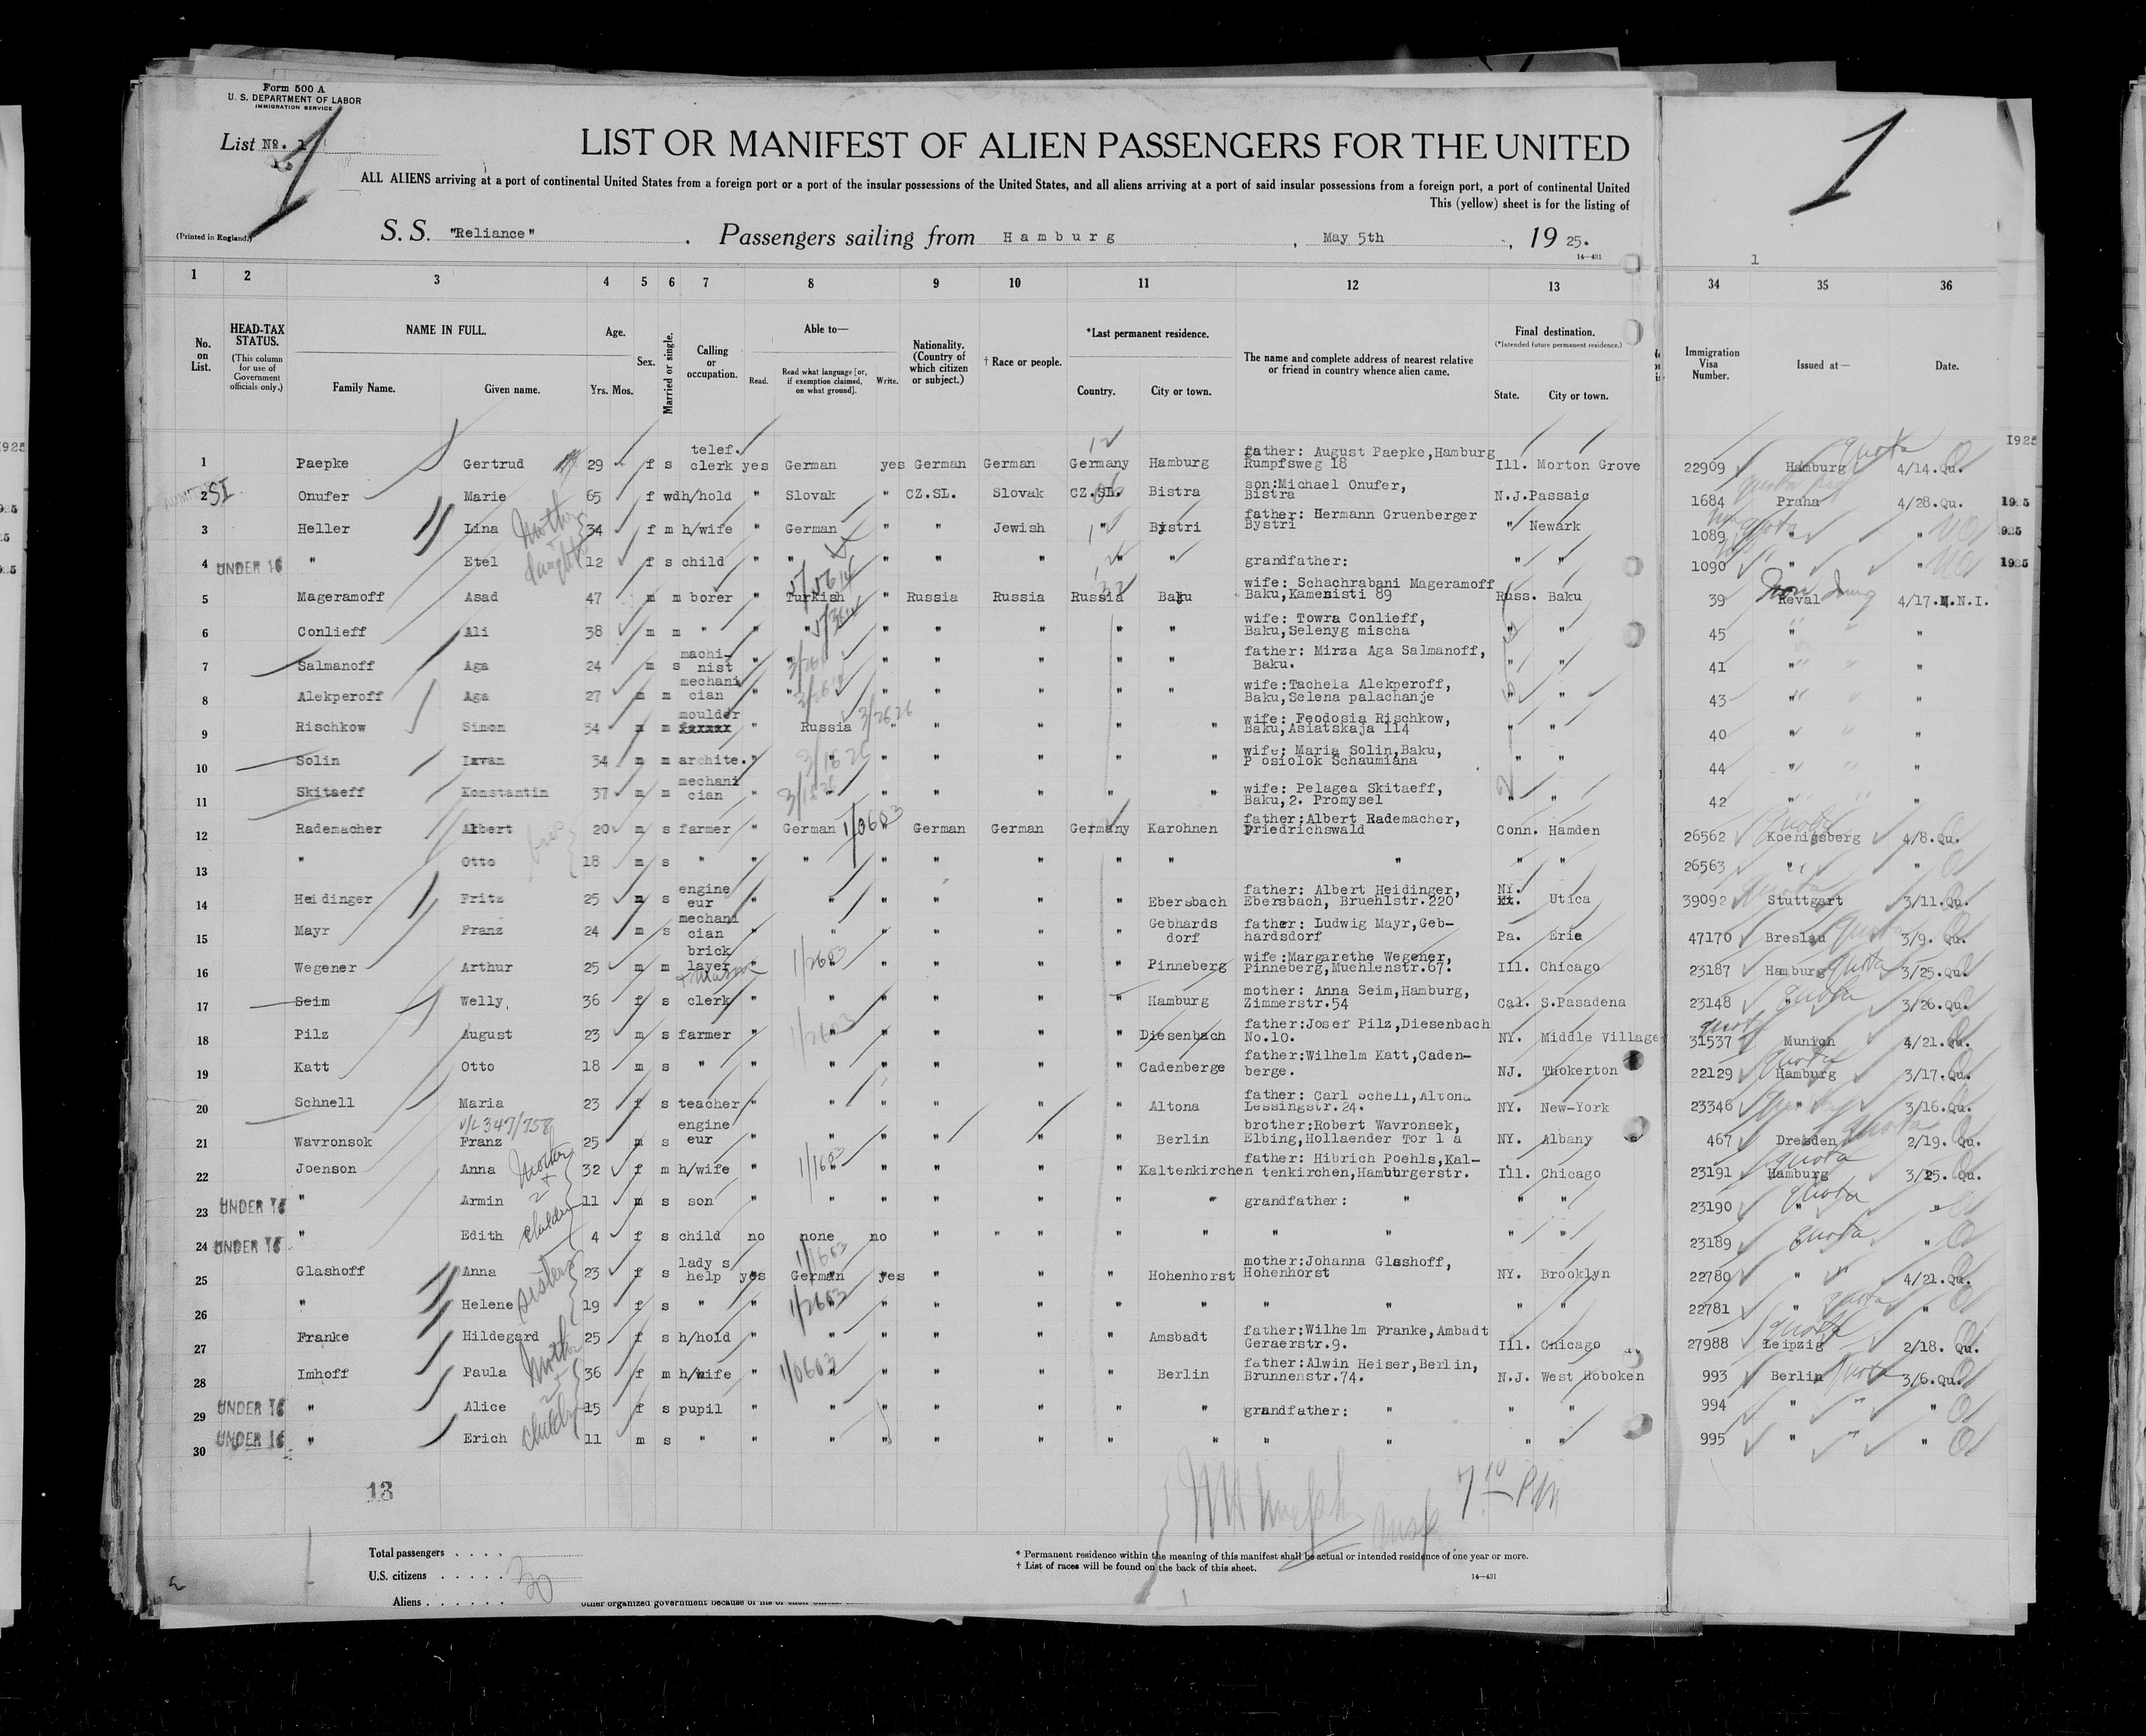 Form 500 A
U. S. DEPARTMENT OF LABOR
IMMIGRATION SERVICE
List No. 1
1
1
LIST OR MANIFEST OF ALIEN PASSENGERS FOR THE UNITED
ALL ALIENS arriving at a port of continental United States from a foreign port or a port of the insular possessions of the United States, and all aliens arriving at a port of said insular possessions from a foreign port, a port of continental United
This (yellow) sheet is for the listing of
(Printed in England.)
S. S. "Reliance" . Passengers sailing from Hamburg , May 5th , 19 25.
14—431
1
1 2 3 4 5 6 7 8 9 10 11 12 13 34 35 36
No. on List.
HEAD-TAX STATUS.
(This column for use of Government officials only.)
NAME IN FULL.
Family Name. Given name.
Age.
Yrs. Mos.
Sex.
Married or single.
Calling or occupation.
Able to—
Read. Read what language [or, if exemption claimed, on what ground]. Write.
Nationality. (Country of which citizen or subject.)
† Race or people.
*Last permanent residence.
Country. City or town.
The name and complete address of nearest relative or friend in country whence alien came.
Final destination.
(*Intended future permanent residence.)
State. City or town.
Immigration Visa Number.
Issued at—
Date.
1 Paepke Gertrud 29 f s telef. clerk yes German yes German German Germany Hamburg father: August Paepke,Hamburg Rumpfsweg 18 Ill. Morton Grove 22909 Hamburg quota 4/14.Qu. 1925
2 SI Onufer Marie 65 f wd h/hold " Slovak " CZ.SL. Slovak CZ.SL. Bistra son:Michael Onufer, Bistra N.J. Passaic 1684 Praha 4/28.Qu. 1925
3 Heller Lina Mother 34 f m h/wife " German " " Jewish " Bystri father: Hermann Gruenberger Bystri " Newark 1089 " " 925
4 UNDER 16 " Etel daught 12 f s child " " " " " " " grandfather: " " 1090 " " 1925
5 Mageramoff Asad 47 m m borer " Turkish " Russia Russia Russia Baku wife: Schachrabani Mageramoff Baku,Kamenisti 89 Russ. Baku 39 Reval 4/17.N.N.I.
6 Conlieff Ali 38 m m " " " " " " " " wife: Towra Conlieff, Baku,Selenyg mischa " " 45 " " "
7 Salmanoff Aga 24 m s machi- nist " " " " " " " father: Mirza Aga Salmanoff, Baku. " " 41 " " "
8 Alekperoff Aga 27 m m mechani cian " " " " " " " wife:Tachela Alekperoff, Baku,Selena palachanje " " 43 " " "
9 Rischkow Simon 34 m m moulder " Russia " " " " " wife: Feodosia Rischkow, Baku,Asiatskaja 114 " " 40 " " "
10 Solin Iwan 34 m m archite. " " " " " " " wife: Maria Solin,Baku, P osiolok Schaumiana " " 44 " " "
11 Skitaeff Konstantin 37 m m mechani cian " " " " " " " wife: Pelagea Skitaeff, Baku,2. Promysel " " 42 " " "
12 Rademacher Albert 20 m s farmer " German " German German Germany Karohnen father:Albert Rademacher, Friedrichswald Conn. Hamden 26562 Koenigsberg quota 4/8.Qu.
13 " Otto 18 m s " " " " " " " " " " " 26563 " "
14 Heidinger Fritz 25 m s engine eur " " " " " " Ebersbach father: Albert Heidinger, Ebersbach, Bruehlstr.220 NY. Utica 39092 Stuttgart 3/11.Qu.
15 Mayr Franz 24 m s mechani cian " " " " " " Gebhards dorf father: Ludwig Mayr,Geb- hardsdorf Pa. Erie 47170 Breslau quota 3/9. Qu.
16 Wegener Arthur 25 m m brick layer + mason " " " " " " Pinneberg wife:Margarethe Wegener, Pinneberg,Muehlenstr.67. Ill. Chicago 23187 Hamburg quota 3/25.Qu.
17 Seim Welly, 36 f s clerk " " " " " " Hamburg mother: Anna Seim,Hamburg, Zimmerstr.54 Cal. S.Pasadena 23148 " quota 3/26.Qu.
18 Pilz August 23 m s farmer " " " " " " Diesenbach father:Josef Pilz,Diesenbach No.10. NY. Middle Village 31537 quota Munich 4/21.Qu.
19 Katt Otto 18 m s " " " " " " " Cadenberge father:Wilhelm Katt,Caden- berge. NJ. Thokerton 22129 quota Hamburg 3/17.Qu.
20 Schnell Maria 23 f s teacher " " " " " " Altona father: Carl Schell,Altona Lessingstr.24. NY. New-York 23346 " 3/16.Qu.
21 Wavronsok V/L 347/758 Franz 25 m s engine eur " " " " " " Berlin brother:Robert Wavronsek, Elbing,Hollaender Tor 1 a NY. Albany 467 Dresden quota 2/19. Qu.
22 Joenson Anna Mother 32 f m h/wife " " " " " " Kaltenkirchen father: Hibrich Poehls,Kal- tenkirchen,Hamburgerstr. Ill. Chicago 23191 quota Hamburg 3/25.Qu.
23 UNDER 16 " Armin 2 children 11 m s son " " " " " " " grandfather: " " " 23190 quota " "
24 UNDER 16 " Edith 4 f s child no none no " " " " " " " " " 23189 quota "
25 Glashoff Anna sisters 23 f s lady s help yes German yes " " " Hohenhorst mother:Johanna Glashoff, Hohenhorst NY. Brooklyn 22780 " " 4/21.Qu.
26 " Helene 19 f s " " " " " " " " " " " " 22781 " quota "
27 Franke Hildegard 25 f s h/hold " " " " " " Amsbadt father:Wilhelm Franke,Ambadt Geraerstr.9. Ill. Chicago 27988 quota Leipzig 2/18. Qu.
28 Imhoff Paula Mother 36 f m h/wife " " " " " " Berlin father:Alwin Heiser,Berlin, Brunnenstr.74. N.J. West Hoboken 993 Berlin quota 3/6.Qu.
29 UNDER 16 " Alice 15 f s pupil " " " " " " " grandfather: " " " 994 " " "
30 UNDER 16 " Erich 2 children 11 m s " " " " " " " " " " " " 995 " " "
13
7 10 PM
Total passengers . . . .
U.S. citizens . . . . .
30
Aliens . . . . . .
* Permanent residence within the meaning of this manifest shall be actual or intended residence of one year or more.
† List of races will be found on the back of this sheet.
14—431
other organized government because of his or their